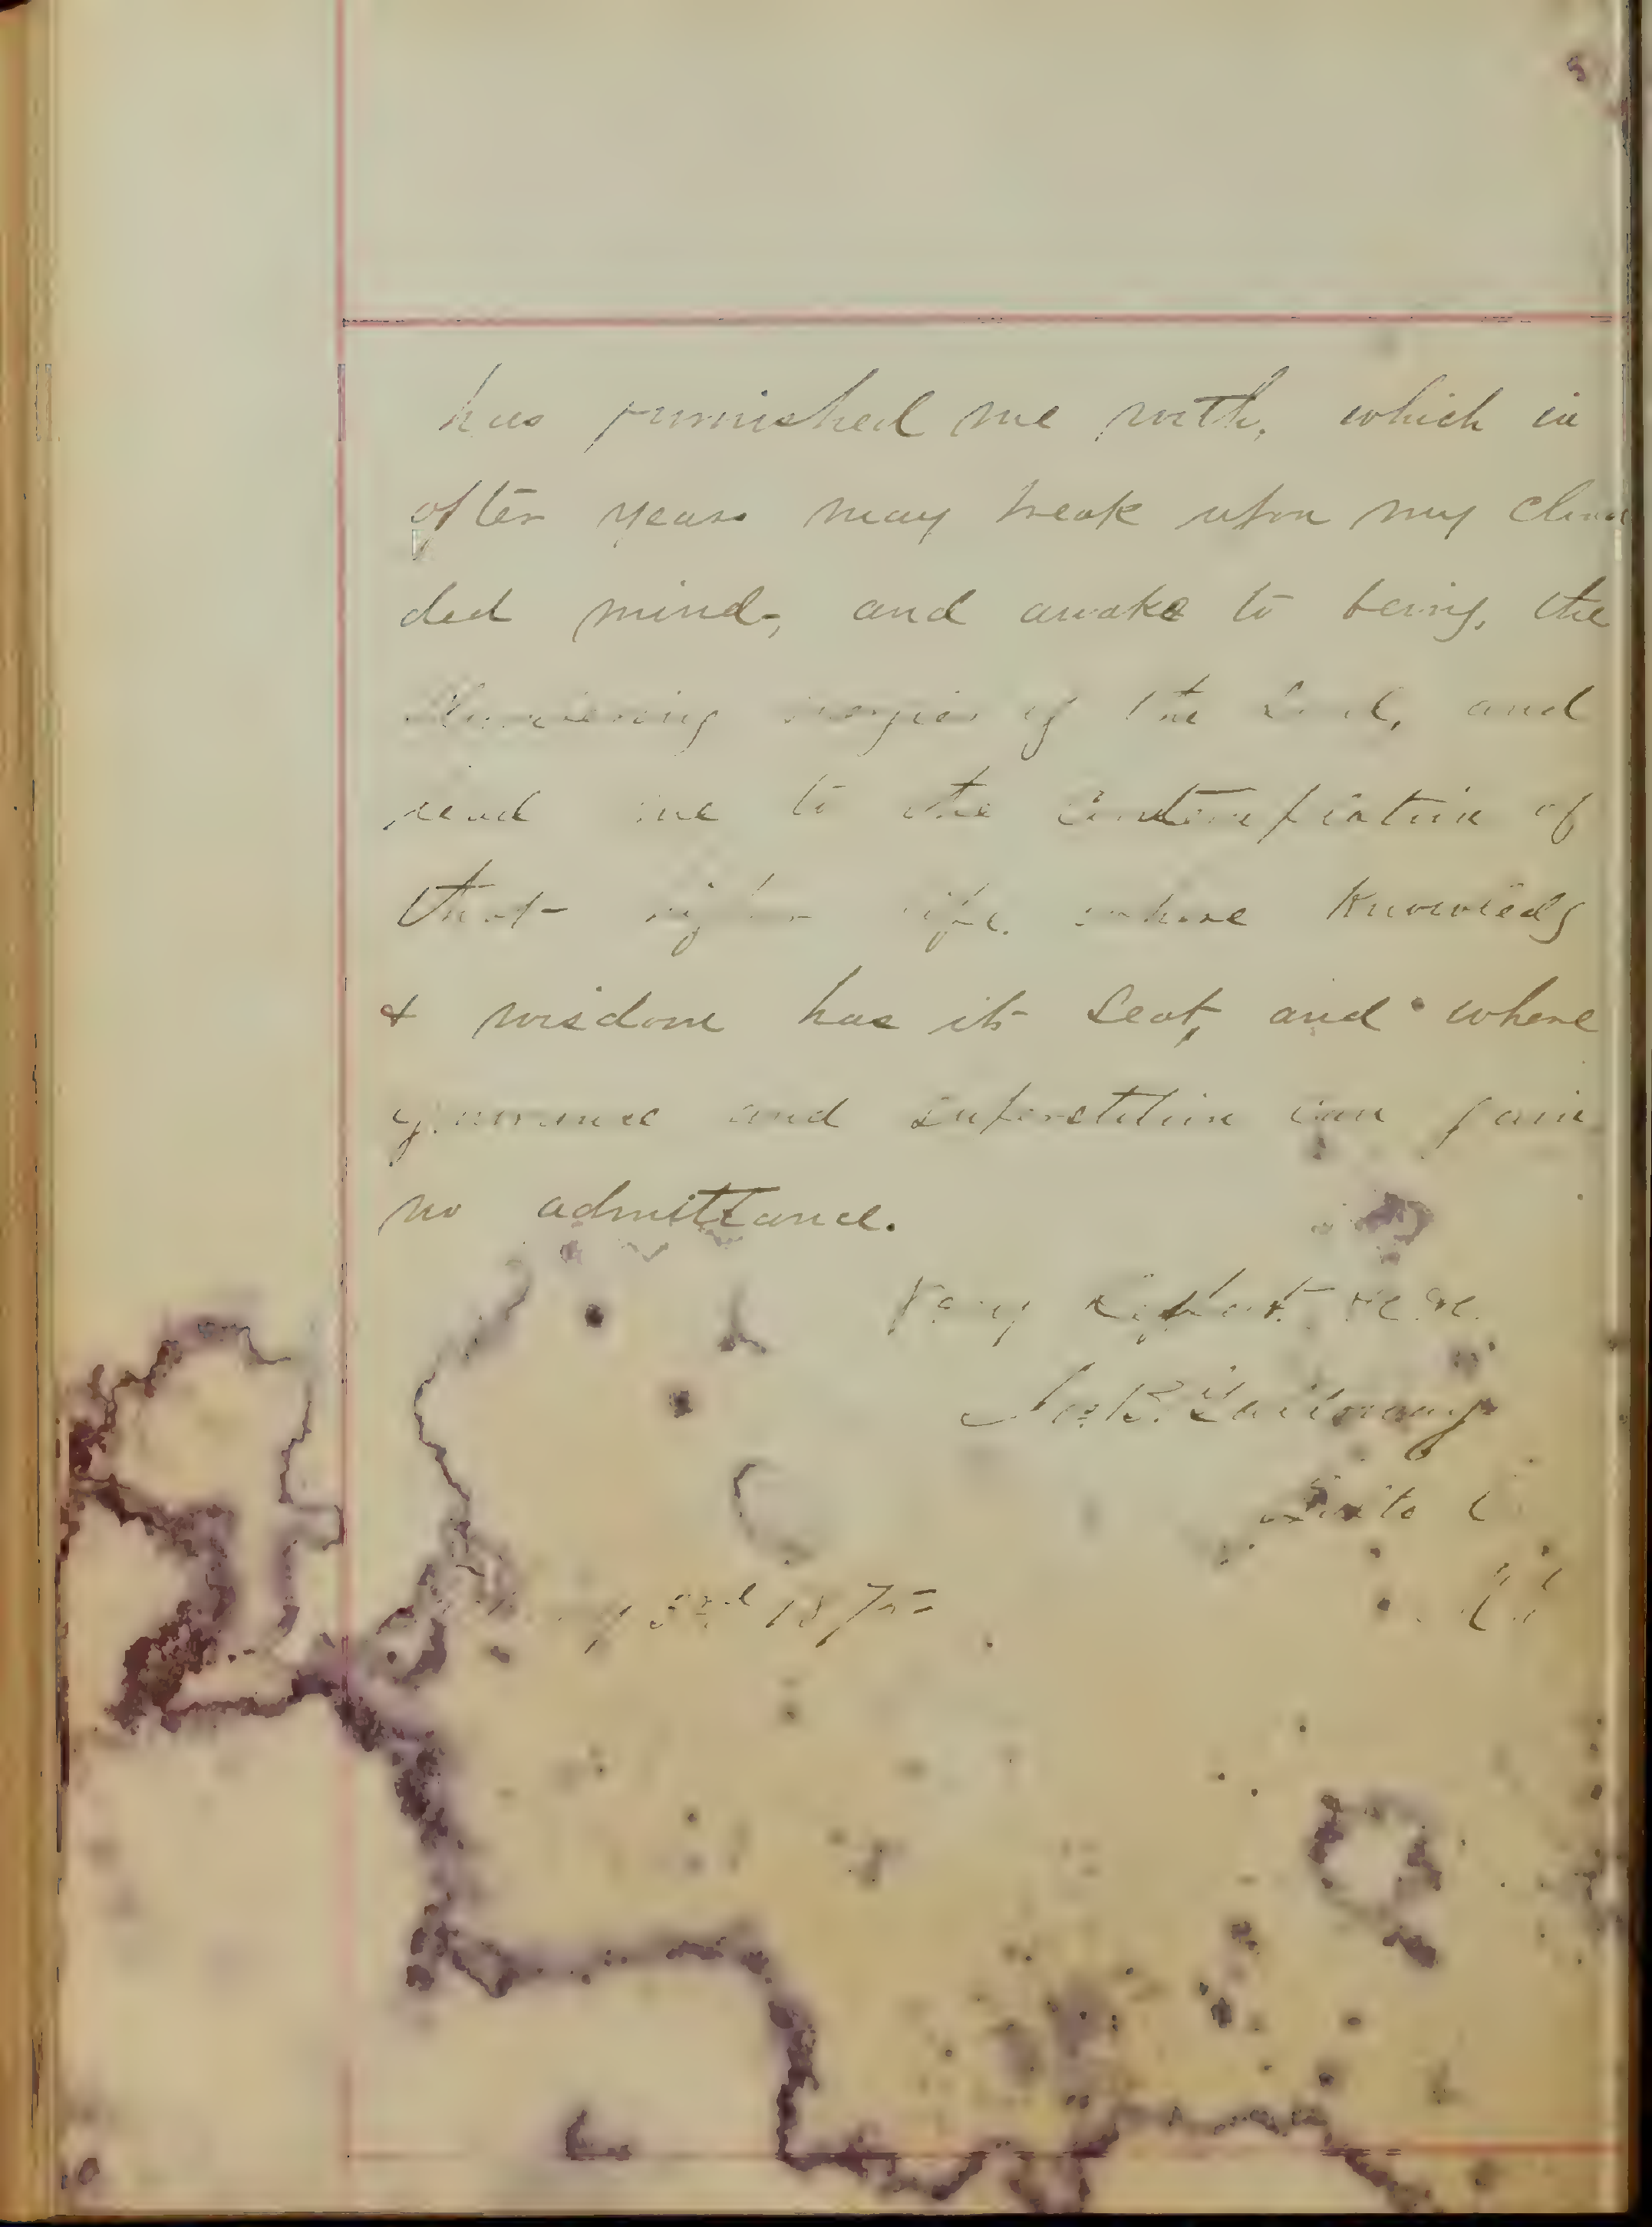 5
has furnished me with, which in
after years may break upon my clou
ded mind, and awake to being, the
slumbering energies of the Soul, and
lead me to the Contemplation of
that higher life, where Knowledg
& wisdom has its Seat, and where
ignorance and superstition can gain
no admittance.
Very Respect
3rd 187